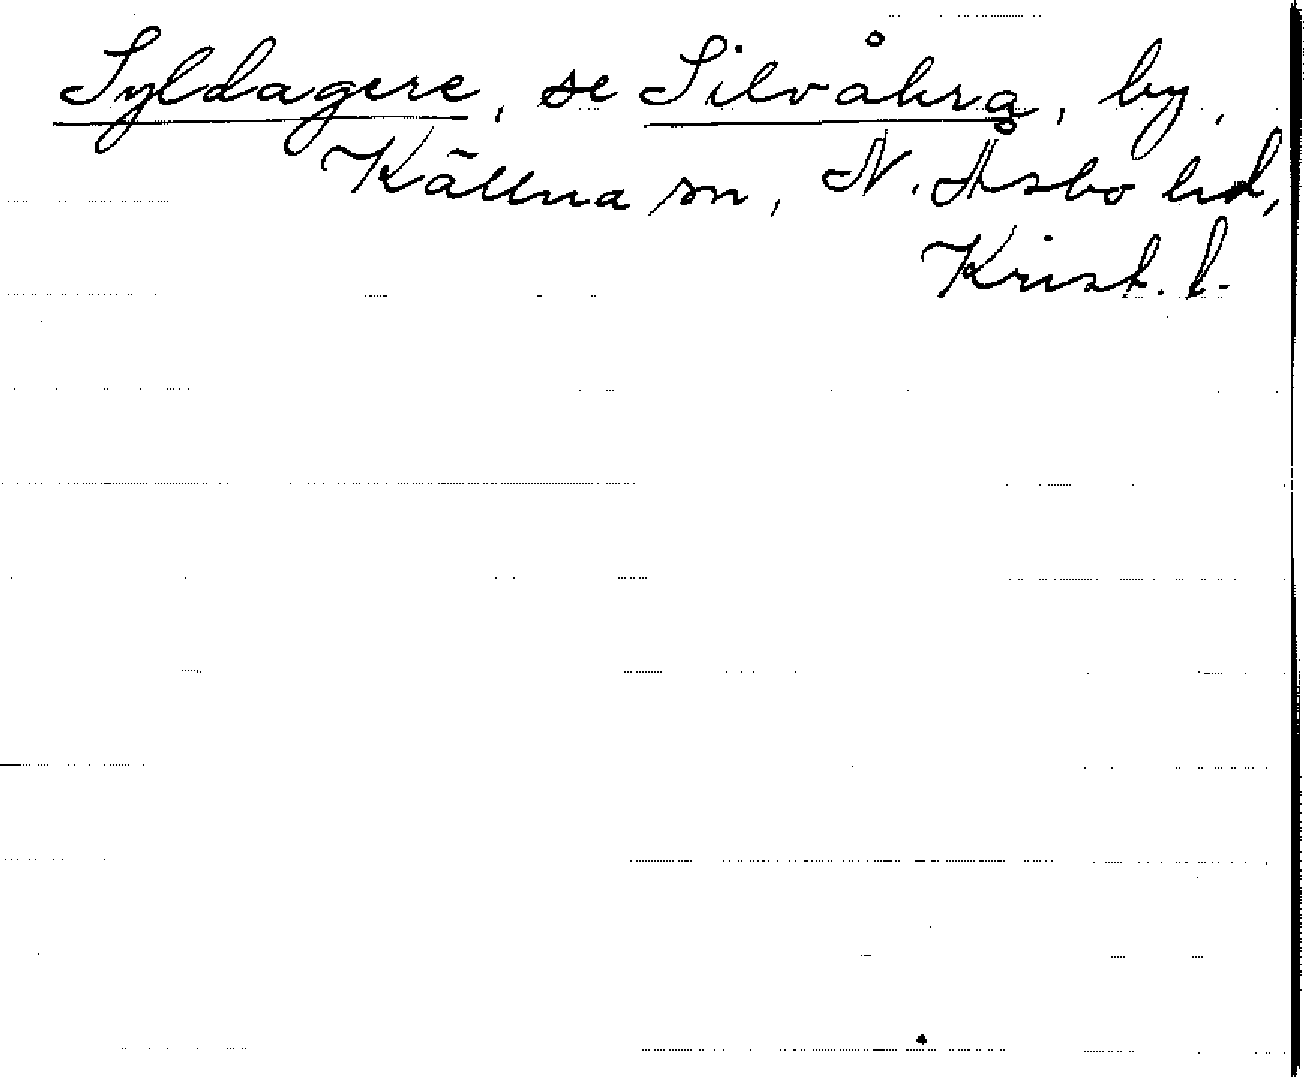 Syldagere, se Silvåkra, by,
Källna sn, N. Åsbo hd,
Krist. l.